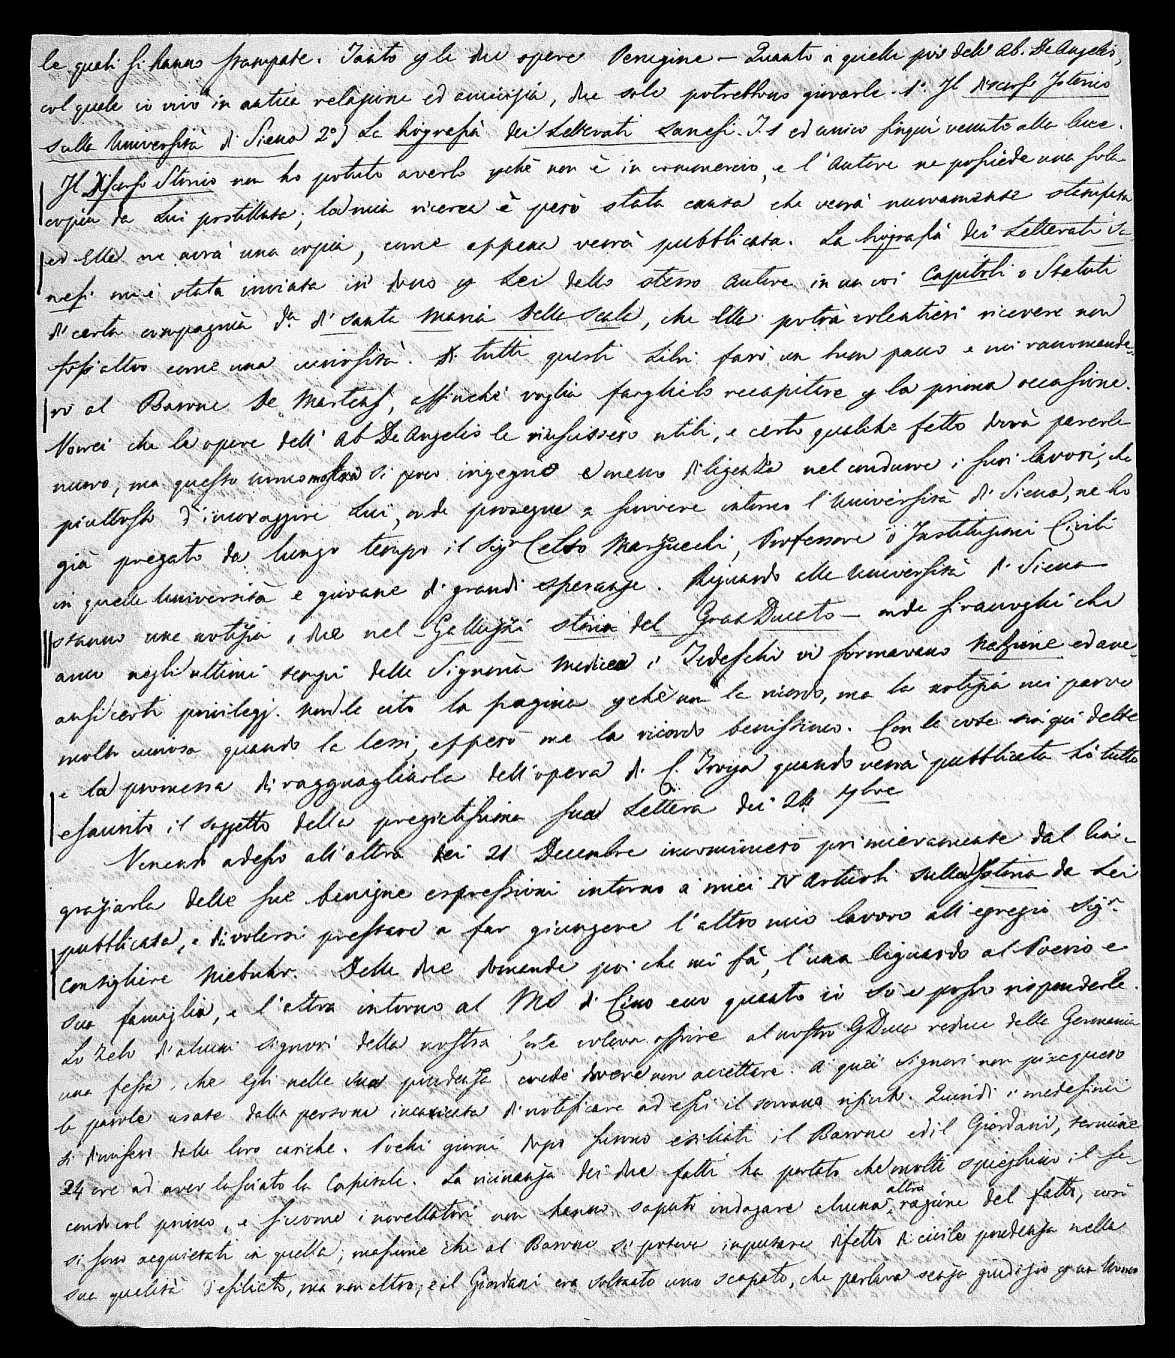 le quali si hanno stampate. Tanto p le due opere Perugine — Quanto a quelle poi dell' Ab. De Angelis,
col quale io vivo in antica relazione ed amicizia, due sole potrebbono giovarle. 1°. Il discorso Istorico
sulla Università di Siena 2°) La biografia dei Letterati Sanesi. T. 1 ed unico finqui venuto alla luce.
Il Discorso Storico non ho potuto averlo pchè non è in commercio, e l'Autore ne possiede una sola
copia da Lui postillata; la mia ricerca è però stata causa che verrà nuovamente stampata
ed Ella ne avrà una copia, come appena verrà pubblicata. La biografia dei Letterati Sa-
nesi mi è stata inviata in dono p Lei dello stesso Autore in un coi Capitoli o Statuti
di certa compagnia da di Santa Maria della Scala, che Ella potrà volentieri ricevere non
foss'altro come una curiosità. Di tutti questi Libri farò un buon pacco e mi raccomande-
rò al Barone de Martens, affinchè voglia farglielo recapitare p la prima occasione.
Vorrei che le opere dell' Ab De Angelis le riuscissero utili, e certo qualche fatto dovrà parerle
nuovo, ma quest' uomo mostra di poco ingegno e meno diligenza nel condurre i suoi lavori; che
piuttosto d'incoraggire Lui, onde prosegua a scrivere intorno l'Università di Siena, ne ho
già pregato da lungo tempo il Sigr Celso Marzucchi, Professore d' Instituzioni Civili
in quella Università e giovane di grandi speranze. Riguardo alla Università di Siena
stanno una notizia, o due nel Galluzzi storia del Gran Ducato — onde si raccoglie che
anco negli ultimi tempi della Signoria Medicea i Tedeschi vi formavano Nazione ed ave-
ansi certi privilegj. Non le cito la pagina pchè non la ricordo, ma la notizia mi parve
molto curiosa quando la lessi, epperò me la ricordo benissimo. Con le cose sin qui dette
e la promessa di ragguagliarla dell'opera di C. Troya quando verrà pubblicata ho tutto
esaurito il soggetto della pregiatissima sua Lettera dei 24 9bre
Venendo adesso all'altra dei 21 Decembre incomincerò primieramente dal rin-
graziarla delle sue benigne espressioni intorno a' miei IV Articoli sulla Storia da Lei
pubblicata, e di volersi prestare a far giungere l'altro mio lavoro all'egregio Sigr.
Consigliere Niebuhr. Delle due domande poi che mi fà, l'una riguardo al Poerio e
sua famiglia, e l'altra intorno al MS di Cino ecco quanto io sò e posso risponderle.
Lo zelo d'alcuni signori della nostra voleva offrire al nostro GDuca reduce dalla Germania
una festa, che egli nella sua prudenza credè dovere non accettare. A quei Signori non piacquero
le parole usate dalla persona incaricata di notificare ad essi il sovrano rifiuto. Quindi i medesimi
si dimisero dalle loro cariche. Pochi giorni dopo furono esiliati il Barone ed il Giordani, termine
24 ore ad aver lasciato la Capitale. La vicinanza dei due fatti ha portato che molti spieghino il se-
condo col primo, e siccome i novellatori non hanno saputo indagare alcuna altra ragione del fatto, così
si sono acquietati in quella; massime che al Barone si poteva imputare difetto di civile prudenza nella
sua qualità d'esiliato, ma non altro; e il Giordani era soltanto uno scapato, che parlava senza giudizio